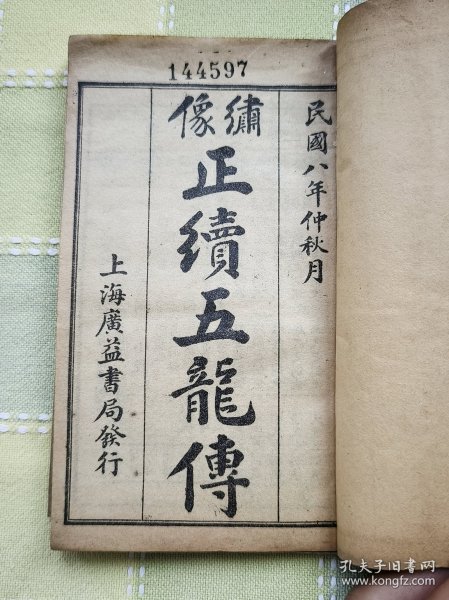 144597
民國八年仲秋月
繡像
正續五龍傳
上海廣益書局發行
孔夫子旧书网
www.kongfz.com